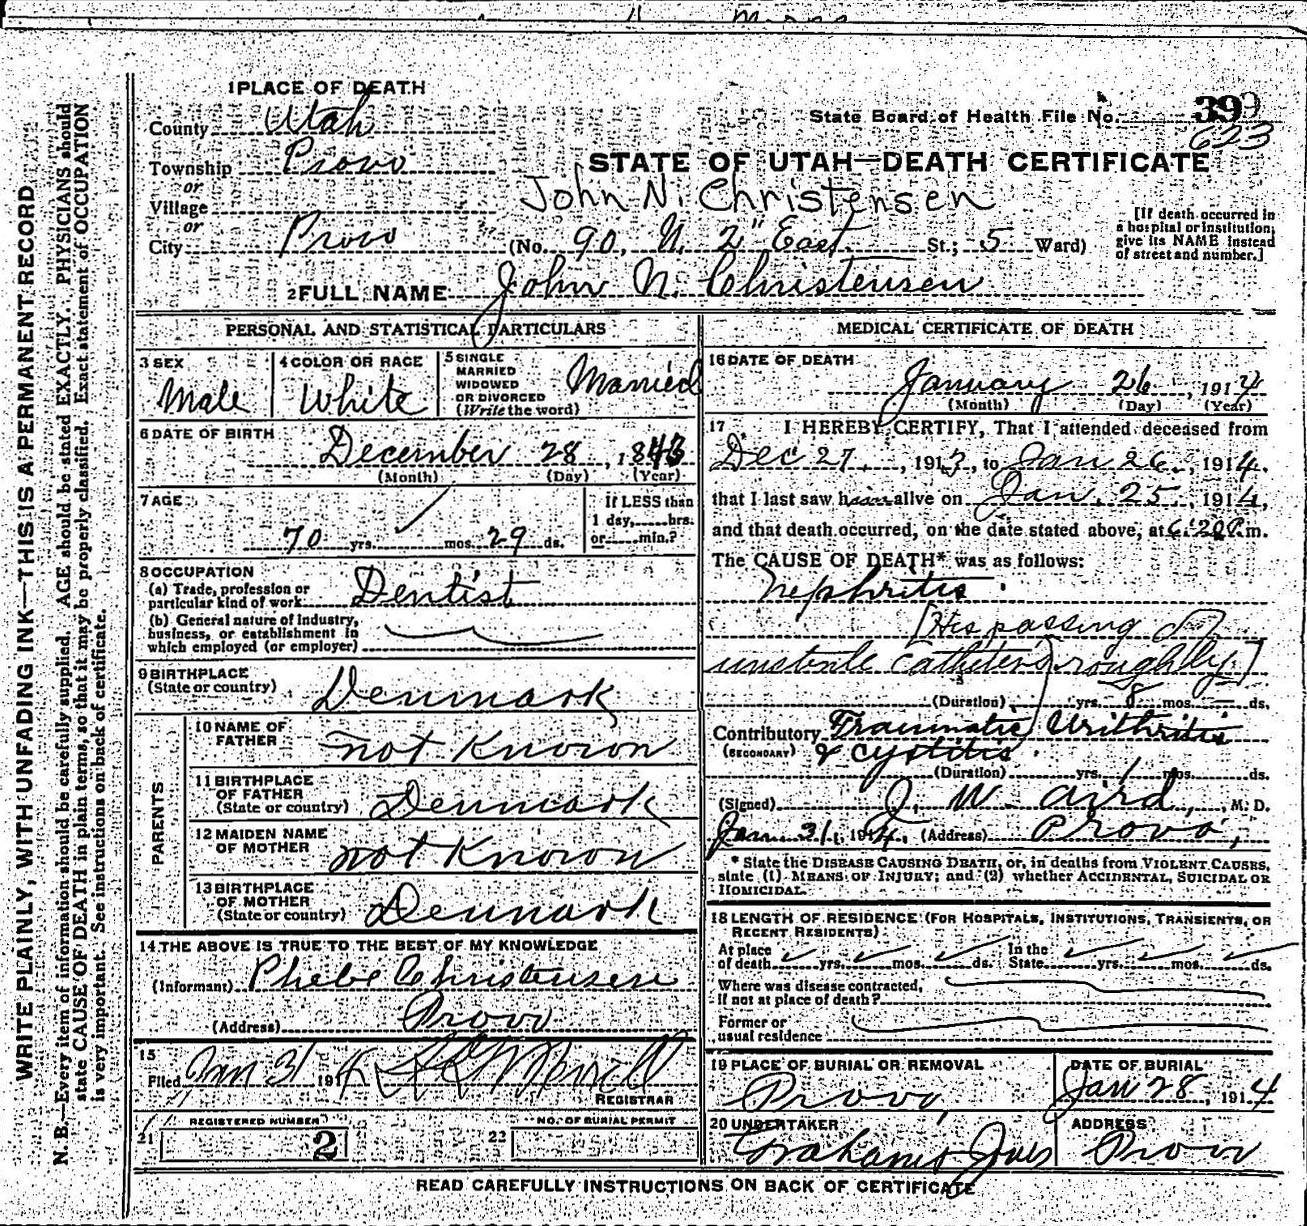 1 PLACE OF DEATH
County Utah
State Board of Health File No. 399
623
Township Provo
or
Village
or
City Provo
STATE OF UTAH—DEATH CERTIFICATE
John N. Christensen
(No. 90 N. 2" East St.; 5 Ward)
[If death occurred in a hospital or institution, give its NAME instead of street and number.]
2 FULL NAME John N. Christensen
PERSONAL AND STATISTICAL PARTICULARS
3 SEX
Male
4 COLOR OR RACE
White
5 SINGLE MARRIED WIDOWED OR DIVORCED (Write the word)
Married
6 DATE OF BIRTH
December 28, 1843
(Month) (Day) (Year)
7 AGE
70 yrs. mos. 29 ds.
If LESS than 1 day, hrs. or min.?
8 OCCUPATION
(a) Trade, profession or particular kind of work Dentist
(b) General nature of Industry, business, or establishment in which employed (or employer)
9 BIRTHPLACE
(State or country) Denmark
PARENTS
10 NAME OF FATHER not Known
11 BIRTHPLACE OF FATHER (State or country) Denmark
12 MAIDEN NAME OF MOTHER not Known
13 BIRTHPLACE OF MOTHER (State or country) Denmark
14 THE ABOVE IS TRUE TO THE BEST OF MY KNOWLEDGE
(Informant) Phebe Christensen
(Address) Provo
15
Filed Jan 31 191
REGISTRAR
REGISTERED NUMBER
21 2
NO. OF BURIAL PERMIT
22
MEDICAL CERTIFICATE OF DEATH
16 DATE OF DEATH
January 26, 1914
(Month) (Day) (Year)
17 I HEREBY CERTIFY, That I attended deceased from
Dec 27, 1913, to Jan 26, 1914.
that I last saw him alive on Jan. 25, 1914,
and that death occurred, on the date stated above, at 6:20 P.m.
The CAUSE OF DEATH* was as follows:
Nephritis.
[His passing of
unsterile catheters roughly]
(Duration) yrs. 8 mos. ds.
Contributory Traumatic Urithritis
(SECONDARY) & cystitis.
(Duration) yrs. 1 mos. ds.
(Signed) J. W. Aird, M. D.
Jan 31, 1914. (Address) Provo,
* State the DISEASE CAUSING DEATH, or, in deaths from VIOLENT CAUSES, state (1) MEANS OF INJURY; and (2) whether ACCIDENTAL, SUICIDAL OR HOMICIDAL.
18 LENGTH OF RESIDENCE (FOR HOSPITALS, INSTITUTIONS, TRANSIENTS, OR RECENT RESIDENTS)
At place of death yrs. mos. ds. In the State yrs. mos. ds.
Where was disease contracted, if not at place of death?
Former or usual residence
19 PLACE OF BURIAL OR REMOVAL
Provo,
DATE OF BURIAL
Jan 28, 1914
20 UNDERTAKER
ADDRESS
Provo
READ CAREFULLY INSTRUCTIONS ON BACK OF CERTIFICATE
WRITE PLAINLY, WITH UNFADING INK—THIS IS A PERMANENT RECORD
N. B.—Every item of information should be carefully supplied. AGE should be stated EXACTLY. PHYSICIANS should
state CAUSE OF DEATH in plain terms, so that it may be properly classified. Exact statement of OCCUPATION
is very important. See instructions on back of certificate.